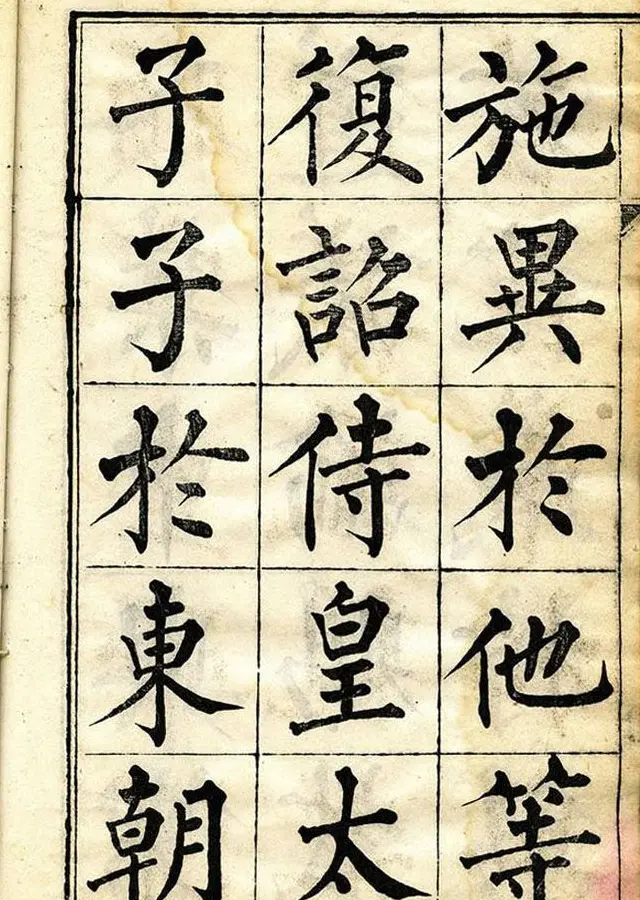 施異於他等
復詔侍皇太
子子於東朝